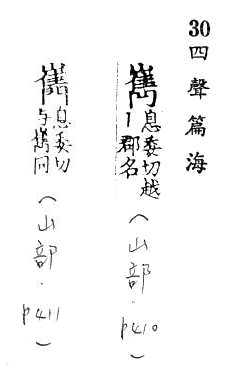 30四聲篇海
嶲
息委切越
丨郡名
（山部.p410）
息委切
与嶲同
（山部.p411）